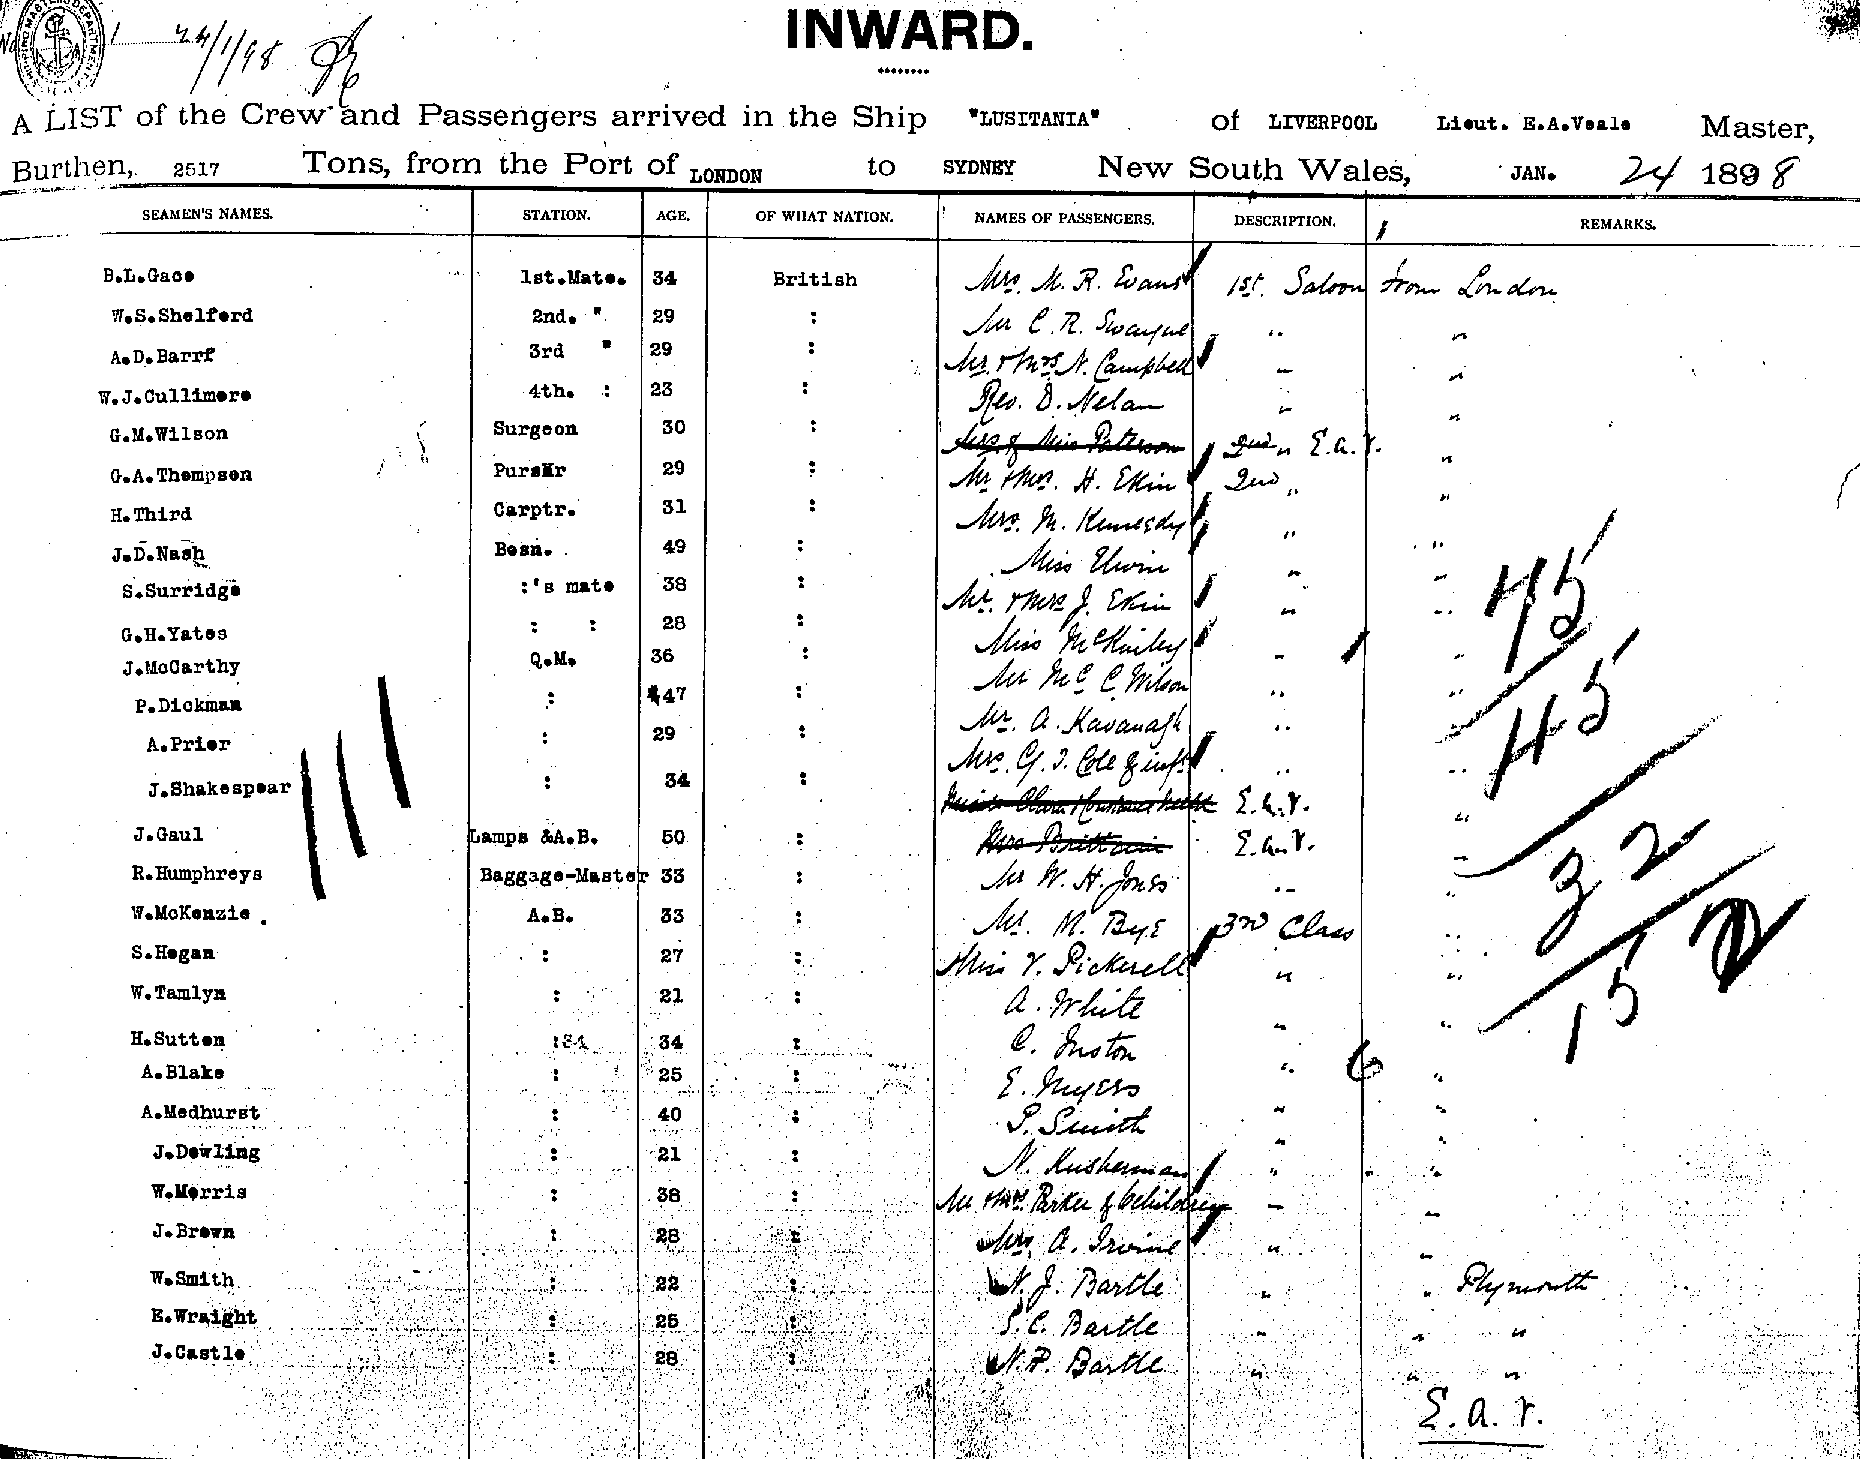 24/1/98
INWARD.
A LIST of the Crew and Passengers arrived in the Ship "LUSITANIA" of LIVERPOOL Lieut. E.A.Veale Master,
Burthen, 2517 Tons, from the Port of LONDON to SYDNEY New South Wales, JAN. 24 1898
SEAMEN'S NAMES. STATION. AGE. OF WHAT NATION. NAMES OF PASSENGERS. DESCRIPTION. REMARKS.
B.L.Gace 1st.Mate. 34 British Mrs. M. R. Evans 1st. Saloon from London
W.S.Shelferd 2nd. " 29 : Mr C. R. " "
A.D.Barrf 3rd " 29 : Mr. & Mrs N. Campbell " "
W.J.Cullimere 4th. : 23 : Rev. D. Nelan " "
G.M.Wilson Surgeon 30 : Mrs & Miss Paterson 2nd " E.a.r. "
G.A.Thempsen 29 : Mr & Mrs. H. Ekin 2nd " "
H.Third Carptr. 31 : Mrs. M. Kennedy " "
J.D.Nash Besn. 49 : Miss " "
S.Surridge :'s mate 38 : Mr. & Mrs J. Ekin " "
G.H.Yates : : 28 : Miss McKinley " "
J.McCarthy Q.M. 36 : Mr McC. C. Wilson " "
P.Dickman : 47 : Mr. A. Kavanagh " "
A.Prier : 29 : Mrs. G. J. Cole & inft " "
J.Shakespear : 34 : E.a.r. "
J.Gaul Lamps &A.B. 50 : Mrs Brittain E.a.r. "
R.Humphreys Baggage-Master 33 : Mr W. H. Jones " "
W.McKenzie . A.B. 33 : Mr. M. Bye 3rd Class "
S.Hegan : 27 : Miss V. Pickerell " "
W.Tamlyn : 21 : A. White " "
H.Sutten : 34 : C. Inston " 6 "
A.Blake : 25 : E. Myers " "
A.Medhurst : 40 : P. Smith " "
J.Dewling : 21 : N. Kusherman " "
W.Merris : 38 : Mr & Mrs. Parker & 6 children " "
J.Brewn : 28 : Mrs A. Irvine " "
W.Smith : 22 : N. J. Bartle " " Plymouth
E.Wraight : 25 : S. C. Bartle " " "
J.Castle : 28 : N. P. Bartle " " "
E. a. r.
45
45
32
15
2